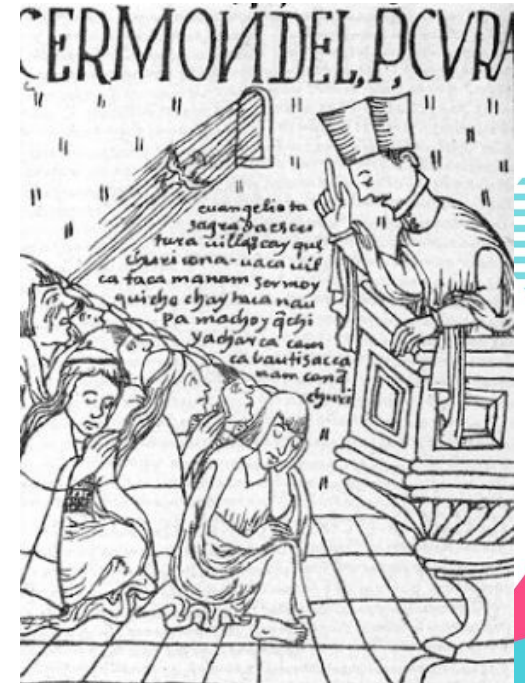 CERMON DEL, P, CVRA
euangelio ta
sagrada escri
tura uillascay que
churicona - uaca uil
ca taca manam sermoy
quicho chay taca nau
pa machoy q̃chi
yacharca cam
ca bautisacca
mam canq̃
churi